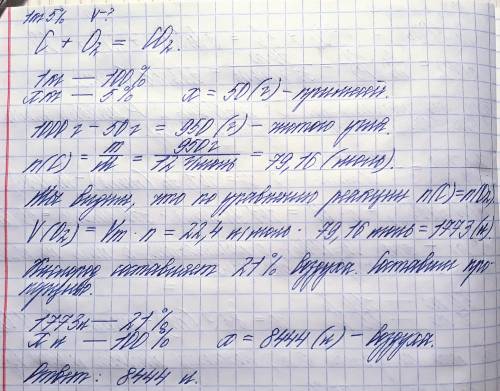 1т 5% V-?
C + O₂ = CO₂.
1т — 100%
xт — 5% x = 50 (г) - примесей.
1000г - 50г = 950 (г) - чистого угля
n(C) = m/M = 950г/12 г/моль = 79,16 (моль).
Мы видим, что по уравнению реакции n(C)=n(O₂)
V(O₂) = Vm · n = 22,4 л/моль · 79,16 моль = 1773 (л).
Кислород составляет 21% воздуха. Составим про-
порцию.
1773л — 21%
x л — 100% x = 8444 (л) - воздуха.
Ответ: 8444 л.